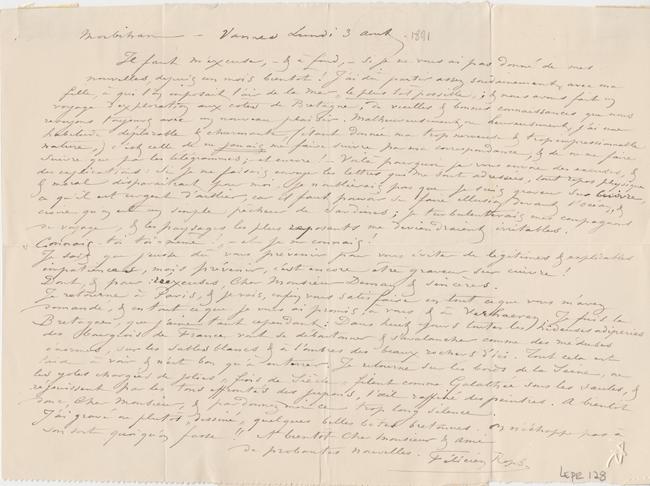 Morbihan – Vannes Lundi 3 août 1891
Il faut m'excuser, – & à fond, – si je ne vous ai pas donné de mes
nouvelles, depuis un mois bientôt ! J'ai dû partir assez soudainement, avec ma
fille, à qui l'on imposait l'air de la mer, le plus tôt possible ; & nous avons fait un
voyage d'exploration aux côtes de Bretagne, de vieilles & bonnes connaissances que nous
revoyons toujours avec un nouveau plaisir. Malheureusement, ou heureusement, j'ai une
habitude déplorable & charmante, (étant donnée ma trop nerveuse & trop impressionnable
nature,) c'est celle de ne jamais me faire suivre par ma correspondance, & de ne faire
suivre que par les télégrammes ; et encore ! Voilà pourquoi je vous envoie des excuses, &
des explications : Si je me faisais envoyer les lettres qui me sont adressées, tout repos physique
& moral disparaitrait pour moi. Je n'oublierais pas que je suis graveur sur cuivre,
& qu'il est urgent d'aciérer, car il faut pouvoir se faire illusion devant l'océan, &
croire qu'on est un simple pêcheur de Sardines ; je turbulenterais mes compagnons
de voyage, & les paysages les plus reposants me deviendraient irritables.
Connais toi toi-même ! – et je me connais !
Je sais que j'eusse dû vous prévenir pour vous éviter de légitimes & explicables
impatiences, mais prévenir, c'est encore être graveur sur cuivre !
Dont, & pour : excuses, Cher Monsieur Deman, & sincères.
Je retourne à Paris, & je vais, enfin, vous satisfaire en tout ce que vous m'avez
demandé, & en tout ce que je vous ai promis, à vous & à Verhaeren. Je fuis la
Bretagne, que j'aime tant cependant : Dans huit jours toutes les hideuses adiposies
des Bourgeois de France, vont se déboutonner & s'avalancher comme des méduses
énormes, sur les sables blancs & à l'ombre des beaux rochers d'ici. Tout cela est
laid à voir & n'est bon qu'à enterrer. Je retourne sur les bords de la Seine, où
les yoles chargées de jolies « fins de Siècle » filent comme Galathée sous les saules, &
réjouissent par les tons affriolants des jupons, l'œil raffiné des peintres. A bientôt
donc, Cher Monsieur, & pardonnez moi ce trop long silence.
J'ai gravé ou plutôt dessiné, quelques belles bêtes bretonnes. On n'échappe pas à
son sort quoiqu'on fasse !! A bientôt cher monsieur & ami
de probantes nouvelles. Félicien Rops
LEPR 128